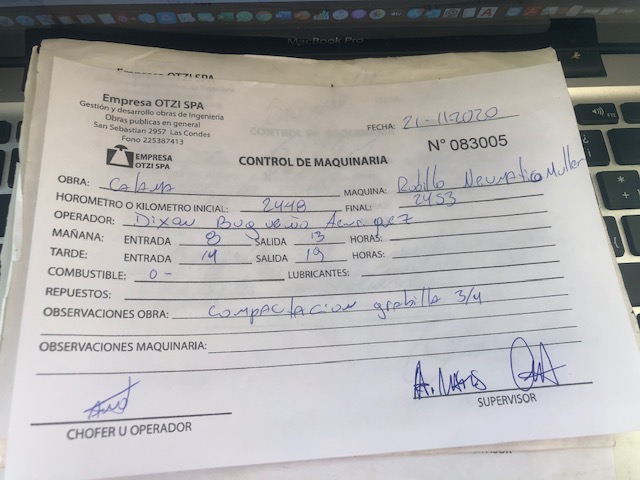 Empresa OTZI SPA
Gestión y desarrollo obras de Ingeniería
Obras públicas en general
San Sebastián 2957 Las Condes
Fono 225387413
FECHA: 21-11-2020
EMPRESA
OTZI SPA
CONTROL DE MAQUINARIA
N° 083005
OBRA: Calama MAQUINA: Rodillo Neumatico Muller
HOROMETRO O KILOMETRO INICIAL: 2448 FINAL: 2453
OPERADOR: Dixan
MAÑANA: ENTRADA 8 SALIDA 13 HORAS:
TARDE: ENTRADA 14 SALIDA 19 HORAS:
COMBUSTIBLE: 0- LUBRICANTES:
REPUESTOS:
OBSERVACIONES OBRA: Compactacion gravilla 3/4
OBSERVACIONES MAQUINARIA:
CHOFER U OPERADOR
SUPERVISOR
MacBook Pro